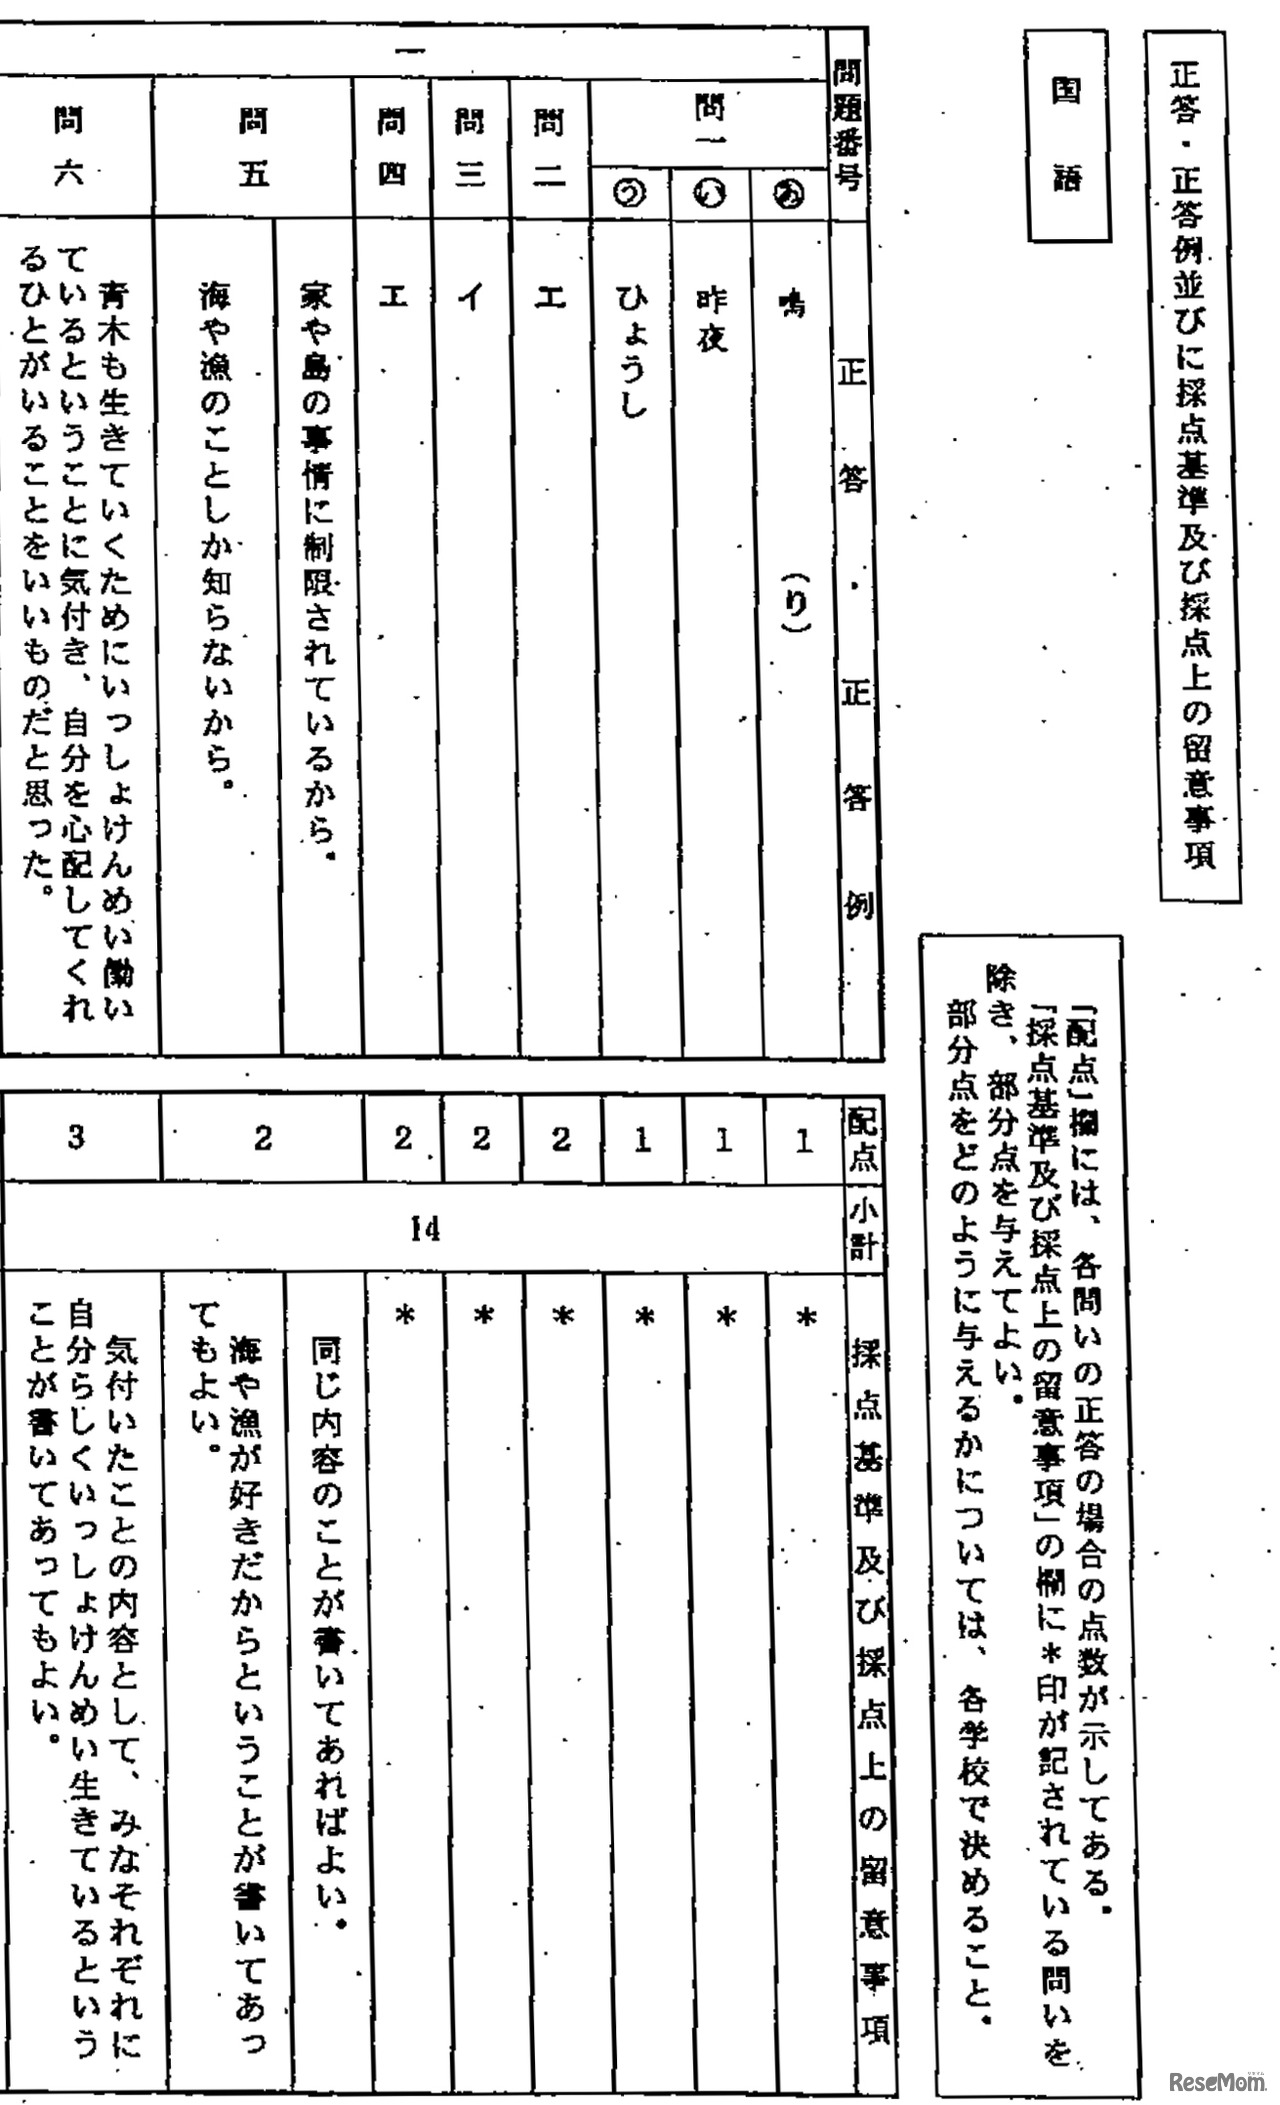 正答・正答例並びに採点基準及び採点上の留意事項
国語
「配点」欄には、各問いの正答の場合の点数が示してある。
「採点基準及び採点上の留意事項」の欄に＊印が記されている問いを
除き、部分点を与えてよい。
部分点をどのように与えるかについては、各学校で決めること。
問題番号 正答・正答例 配点 小計 採点基準及び採点上の留意事項
一
問一 あ 鳴 (り) 1 ＊
い 昨夜 1 ＊
う ひょうし 1 ＊
問二 エ 2 ＊
問三 イ 2 ＊
問四 エ 2 ＊
14
問五
家や島の事情に制限されているから。
海や漁のことしか知らないから。
2
同じ内容のことが書いてあればよい。
海や漁が好きだからということが書いてあっ
てもよい。
問六
青木も生きていくためにいっしょけんめい働い
ているということに気付き、自分を心配してくれ
るひとがいることをいいものだと思った。
3
気付いたことの内容として、みなそれぞれに
自分らしくいっしょけんめい生きているという
ことが書いてあってもよい。
ReseMom